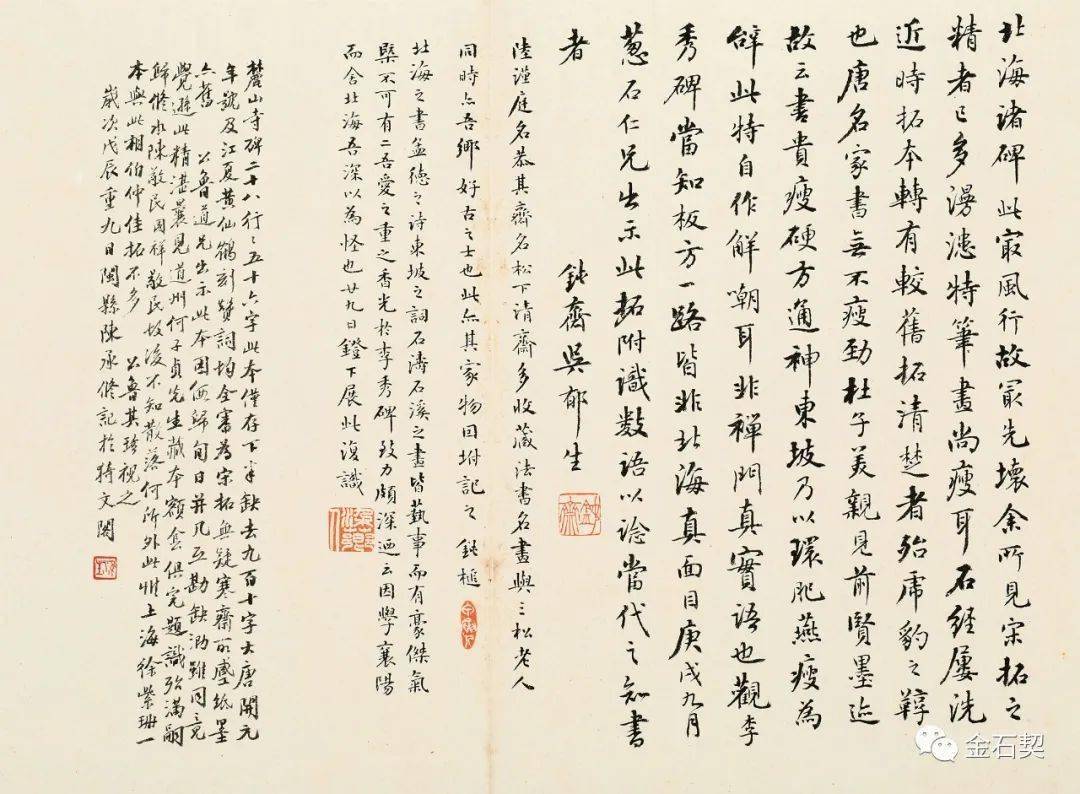 北海諸碑此最風行故最先壞余所見宋拓之
精者已多漫漶特筆畫尚瘦耳石經屢洗
近時拓本轉有較舊拓清楚者殆虎豹之鞟
也唐名家書無不瘦勁杜子美親見前賢墨迹
故云書貴瘦硬方通神東坡乃以環肥燕瘦為
辭此特自作解嘲耳非禪門真實語也觀李
秀碑當知板方一路皆非北海真面目庚戌九月
蔥石仁兄出示此拓附識數語以諗當代之知書
者 鈍齋吳郁生
陸謹庭名恭其齋名松下清齋多收藏法書名畫與三松老人
同時亦吾鄉好古之士也此亦其家物因坿記之 鈍槌
北海之書孟德之詩東坡之詞石濤石溪之畫皆藝事而有豪傑氣
槩不可有二吾愛之重之香光於李秀碑致力頗深迺云因學襄陽
而舍北海吾深以為怪也廿九日鐙下展此復識
麓山寺碑二十八行行五十六字此本僅存下半缺去九百十字大唐開元
年號及江夏黃仙鶴刻贊詞均全審為宋拓無疑寒齋所感紙墨
亦舊 公魯道兄出示此本因攜歸旬日并几互勘缺泐雖同竟
覺遜此精湛曩見道州何子貞先生藏本額陰俱完題識殆滿嗣
歸修水陳敬民國祥敬民故後不知散落何所外此惟上海徐紫珊一
本與此相伯仲佳拓不多 公魯其珍視之
歲次戊辰重九日閩縣陳承修記於特文閣
金石契